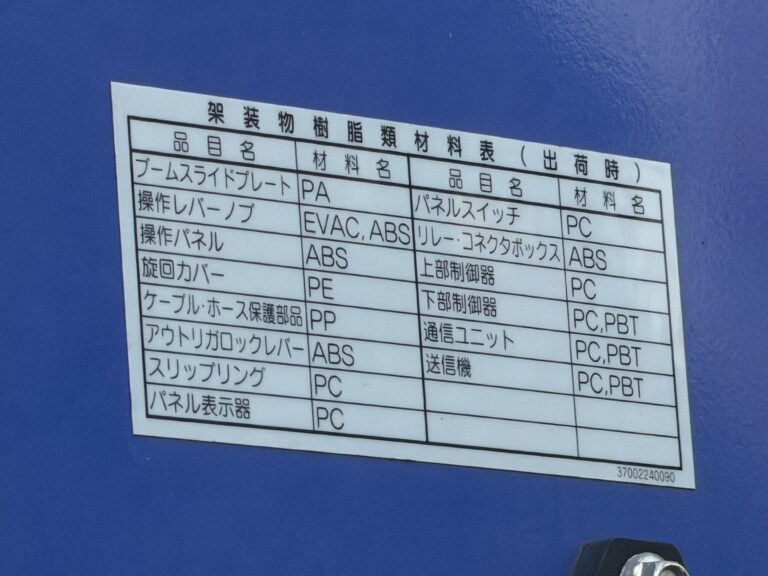 架装物樹脂類材料表(出荷時)
品目名 材料名 品目名 材料名
ブームスライドプレート PA パネルスイッチ PC
操作レバーノブ EVAC,ABS リレー・コネクタボックス ABS
操作パネル ABS 上部制御器 PC
旋回カバー PE 下部制御器 PC,PBT
ケーブル・ホース保護部品 PP 通信ユニット PC,PBT
アウトリガロックレバー ABS 送信機 PC,PBT
スリップリング PC
パネル表示器 PC
37002240090